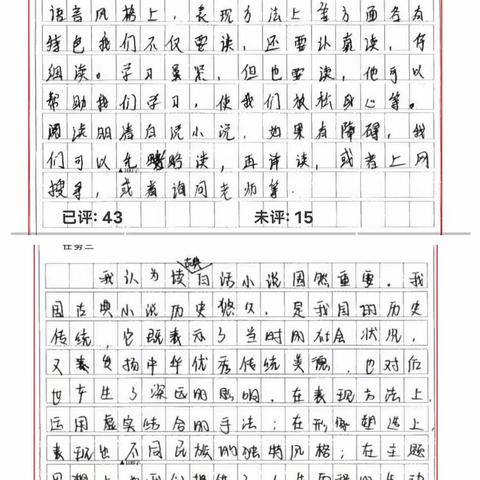 语言风格上，表现方法上等方面各有
特色我们不仅要读，还要认真读，仔
细读。学习虽紧，但也要读，他可以
帮助我们学习，使我们放松身心等。
阅读明清白话小说，如果有障碍，我
们可以先略读，再详读，或者上网
搜寻，或者询问老师等.
已评: 43 未评: 15
任务三
古典
我认为读白话小说固然重要。我
国古典小说历史悠久，是我国的历史
传统，它既表示了当时的社会状况，
又表发扬中华优秀传统美德，也对后
世产生了深远的影响，在表现方法上，
运用虚实结合的手法；在形象塑造上，
表现出不同民族的独特风格；在主题